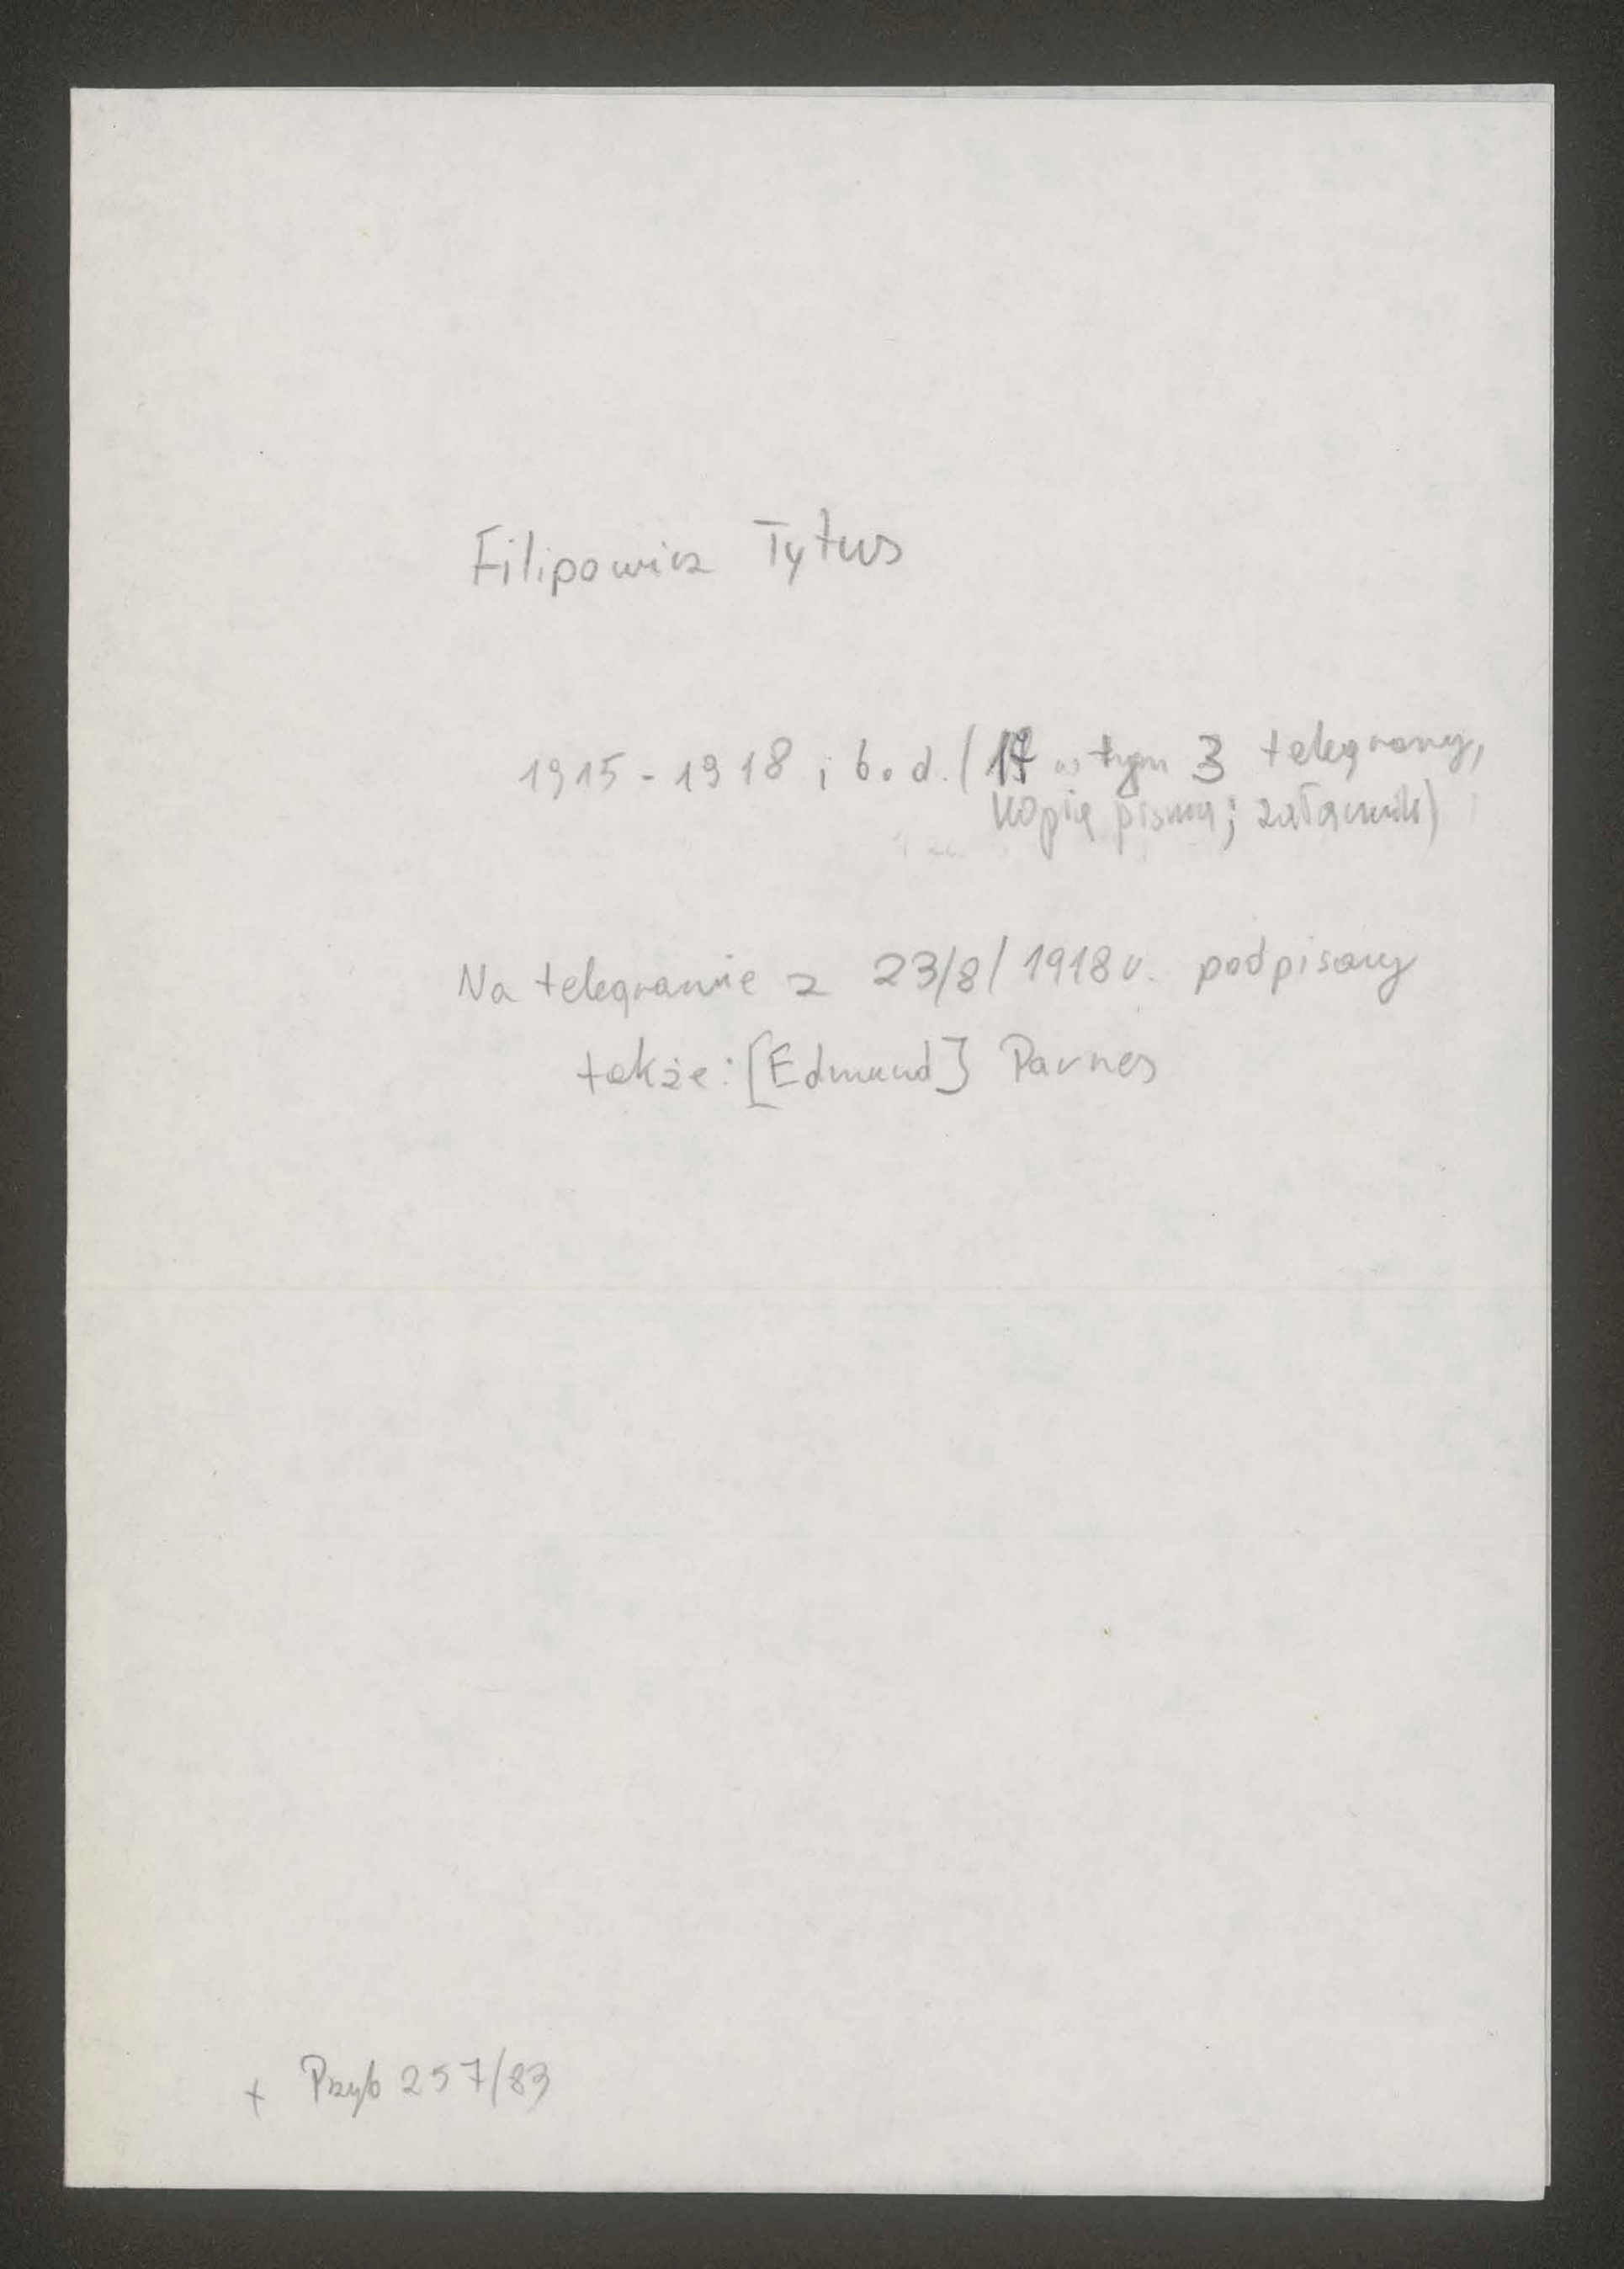 Filipowicz Tytus
1915-1918 i b.d. (17 w tym 3 telegramy,
kopia pisma; załącznik)
Na telegramie z 23/8/1918 r. podpisany
także: [Edmund] Parnes
+ Przyb 257/83